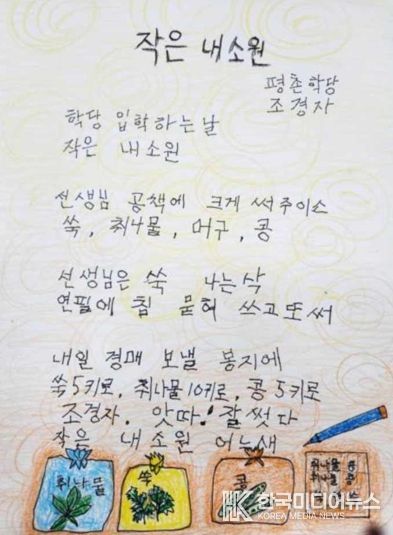 작은 내소원
평촌학당
조경자
학당 입학하는날
작은 내소원
선생님 공책에 크게 써주이소
쑥, 취나물, 머구, 콩
선생님은 쑥 나는삭
연필에 침 묻혀 쓰고또써
내일 경매 보낼 봉지에
쑥5키로, 취나물10키로, 콩5키로
조경자. 앗따! 잘썻다
작은 내소원 어느새
취나물
쑥
콩
취나물
취나물
한국미디어뉴스
KOREA MEDIA NEWS